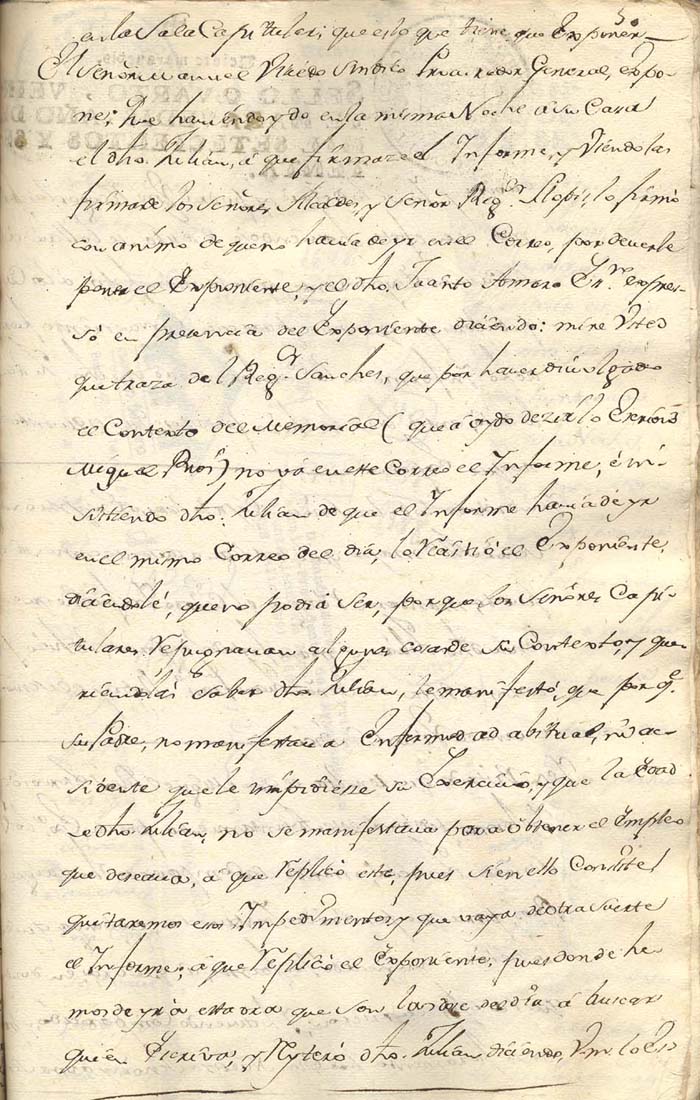 en la Sala Capitular; que esto que tiene que Exponer
El Señor Manuel Vizedo Sindico Procurador General, expo-
ne; Que haviendo ydo en la misma Noche a su Casa
el dho. Julian, á que firmaze el Informe, y Viendo las
firmas de los Señores Alcaldes, y Señor Regr. Llopis, lo firmó
con animo de que no havia de yr en el Correo, por deverle
poner el Exponiente, y el dho. Juanto Amoro Essno. expres-
só en presencia del Exponiente diciendo: mire Vsted
que traza del Regr. Sanches, que por haver divulgado
el Contexto del Memorial (que á oydo dezirlo
Miguel) no vá en este Correo el Informe, é in-
sistiendo dho. Julian de que el Informe havia de yr
en el mismo Correo del dia, lo Resistió el Exponiente,
diciendole, que no podia ser, por que los Señores Capi-
tulares repugnavan algunas cosas de su Contexto, y que-
riendolas saber dho. Julian, le manifestó, que por qe.
su Padre, no manifestava Enfermedad abitual, ni ac-
sidente que le impidiesse su Exercicio, y que la Edad
de dho. Julian, no se manifestava para obtener el Empleo
que deseava, á que Replicó este, pues si en ello Consiste
quitaremos esos Impedimentos, y que vaya de otra suerte
el Informe; á que Replicó el Exponiente, pues donde he-
mos de yr á esta ora que son las doze del dia á buscar
quien Escriva, y Reyteró dho. Julian diciendo, Vm. lo Es